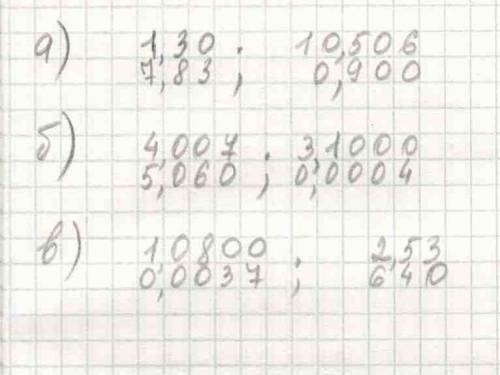 а) 1,30 ; 10,506
7,83 0,900
б) 4,007 ; 3,1000
5,060 0,0004
в) 10800 ; 2,53
0,0037 640